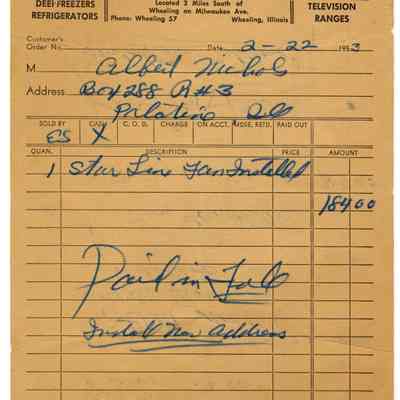 DEEPFREEZERS
REFRIGERATORS
Located 2 Miles South of
Wheeling on Milwaukee Ave.
Phone: Wheeling 57 Wheeling, Illinois
TELEVISION
RANGES
Customer's
Order No. Date 2-22 1953
M Albert Nichols
Address Box 288 R#3
Palatine, Ill
SOLD BY CASH C. O. D. CHARGE ON ACCT. MDSE. RETD. PAID OUT
ES X
QUAN. DESCRIPTION PRICE AMOUNT
1 Star Line Fan Installed
184 00
Paid in Full
Install New Address